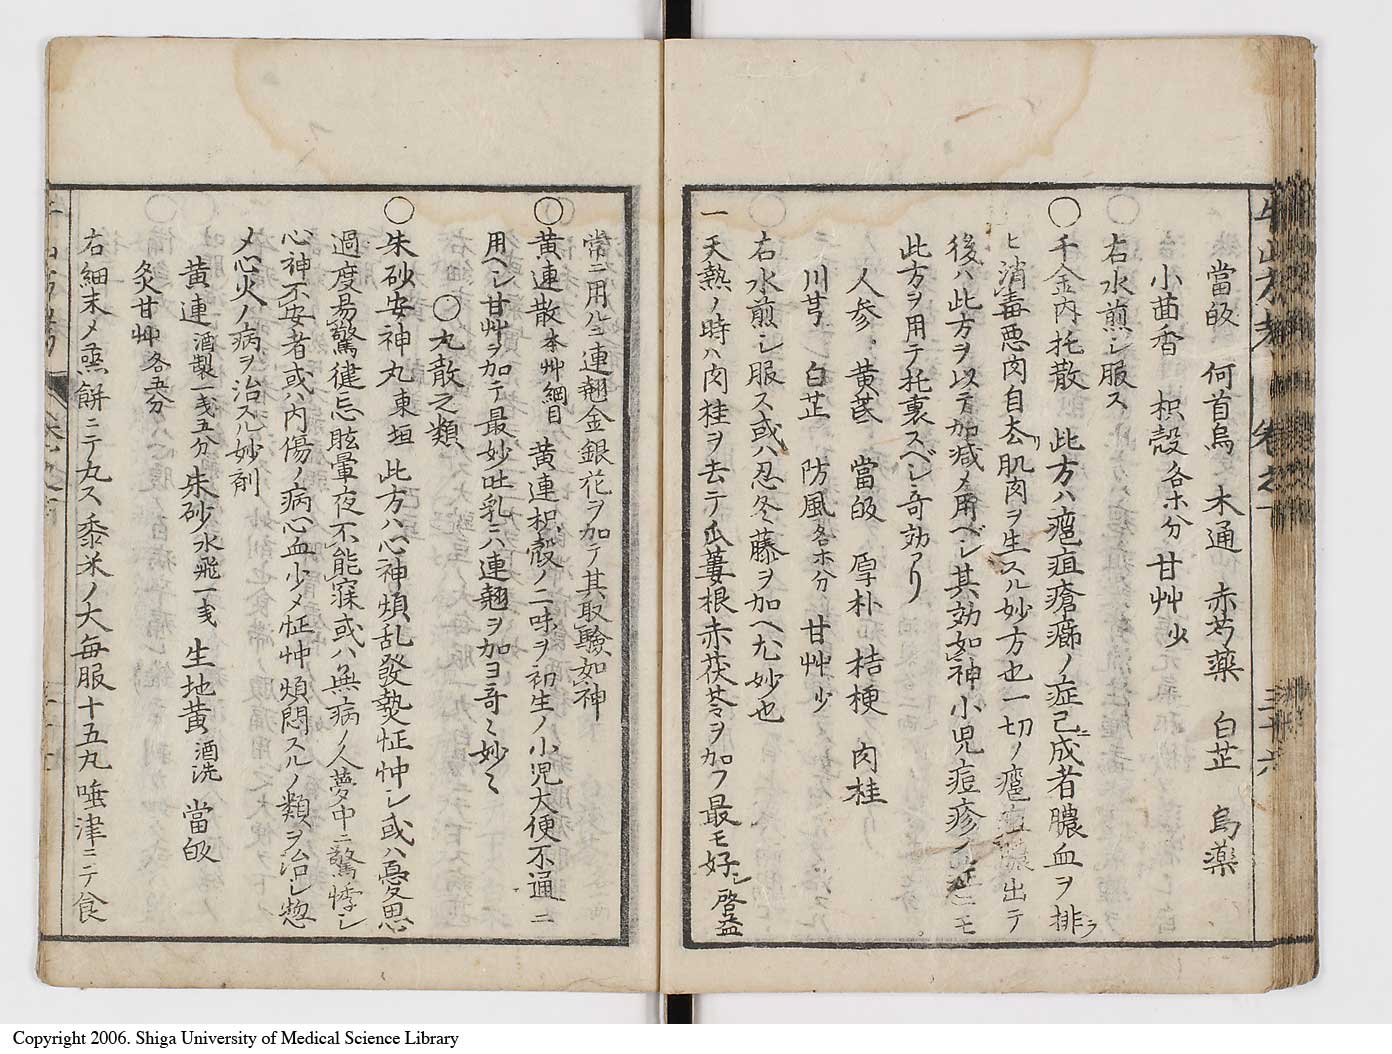 當皈　何首烏　木通　赤芍藥　白芷　烏藥
小茴香　枳殻各ホ分　甘艸少
右水煎シ服ス
〇千金内托散　此方ハ瘟疽瘡癤ノ症已ニ成者膿血ヲ排ラ
ヒ消毒悪肉自去リ肌肉ヲ生スル妙方也一切ノ瘟疽膿出テ
後ハ此方ヲ以テ加減〆用ベシ其効如神小児痘疹ノ症ニモ
此方ヲ用テ托裏スベシ奇効アリ
人参　黄芪　當皈　厚朴　桔梗　肉桂
川芎　白芷　防風各ホ分　甘艸少
右水煎シ服ス或ハ忍冬藤ヲ加ヘ尤妙也
一天熱ノ時ハ肉桂ヲ去テ瓜蔞根赤茯苓ヲ加フ最モ好シ啓益
常ニ用ルニ連翹金銀花ヲ加テ其取驗如神
〇黄連散本艸綱目　黄連枳殻ノ二味ヲ初生ノ小児大便不通ニ
用ベシ甘艸ヲ加テ最妙吐乳ニハ連翹ヲ加ヨ哥ミ妙ミ
〇丸散之類
〇朱砂安神丸東垣　此方ハ心神煩乱發熱怔忡シ或ハ憂思
過度易驚健忘眩暈夜不能寐或ハ無病ノ人夢中ニ驚悸シ
心神不安者或ハ内傷ノ病心血少〆怔忡煩悶スルノ類ヲ治シ惣
〆心火ノ病ヲ治スル妙剤
黄連酒製一戔五分　朱砂水飛一戔　生地黄酒洗　當皈
炙甘艸各五分
右細末〆蒸餅ニテ丸ス黍米ノ大毎服十五丸唾津ニテ食
Copyright 2006. Shiga University of Medical Science Library